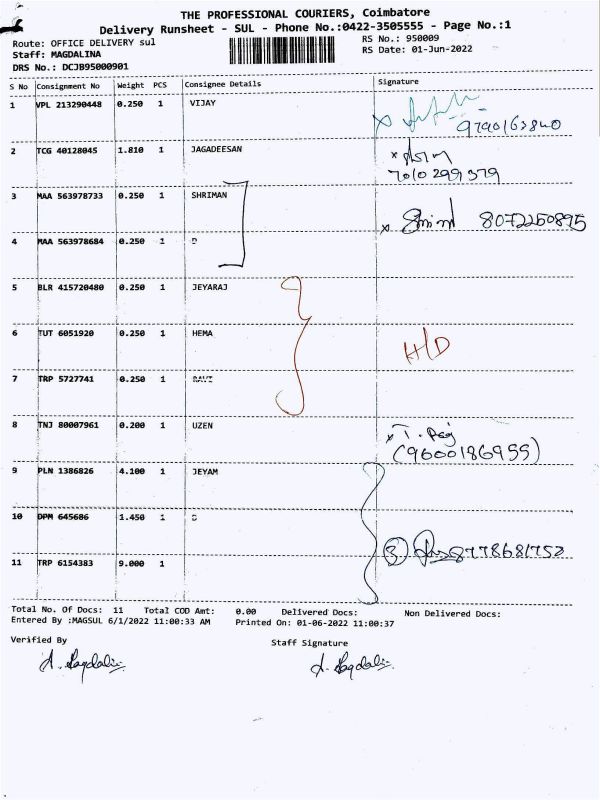 THE PROFESSIONAL COURIERS, Coimbatore
Delivery Runsheet - SUL - Phone No.:0422-3505555 - Page No.:1
Route: OFFICE DELIVERY sul
RS No.: 950009
Staff: MAGDALINA
RS Date: 01-Jun-2022
DRS No.: DCJB95000901
S No Consignment No Weight PCS Consignee Details Signature
1 VPL 213290448 0.250 1 VIJAY
9790163840
2 TCG 40128045 1.810 1 JAGADEESAN
7010299379
3 MAA 563978733 0.250 1 SHRIMAN
8072250895
4 MAA 563978684 0.250 1 D
5 BLR 415720480 0.250 1 JEYARAJ
6 TUT 6051920 0.250 1 HEMA
H/D
7 TRP 5727741 0.250 1 RAVI
8 TNJ 80007961 0.200 1 UZEN
(9600186955)
9 PLN 1386826 4.100 1 JEYAM
10 DPM 645686 1.450 1 D
③ 8778681752
11 TRP 6154383 9.000 1
Total No. Of Docs: 11 Total COD Amt: 0.00 Delivered Docs: Non Delivered Docs:
Entered By :MAGSUL 6/1/2022 11:00:33 AM Printed On: 01-06-2022 11:00:37
Verified By Staff Signature
A. Magdalin A. Magdalin